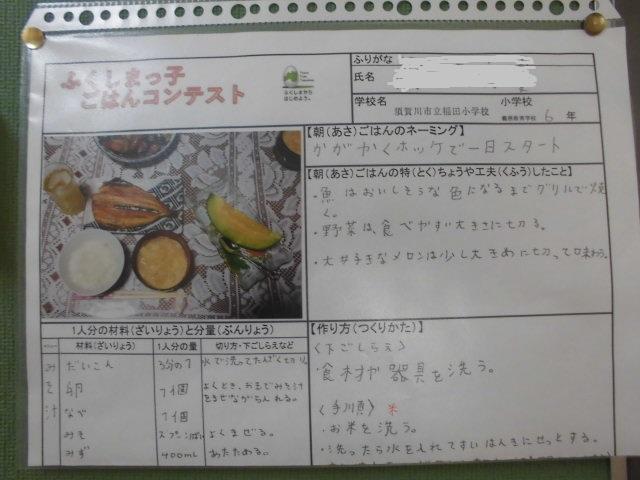 ふくしまっ子
ごはんコンテスト
ふくしまから
はじめよう。
ふりがな
氏名
学校名
須賀川市立稲田小学校
小学校
義務教育学校 6 年
【朝(あさ)ごはんのネーミング】
かがやくホッケで一日スタート
【朝(あさ)ごはんの特(とく)ちょうや工夫(くふう)したこと】
・魚はおいしそうな色になるまでグリルで焼
く。
・野菜は、食べやすい大きさに切る。
・大好きなメロンは少し大きめに切って味わう。
1人分の材料(ざいりょう)と分量(ぶんりょう)
材料(ざいりょう) 1人分の量 切り方・下ごしらえなど
みそ汁
だいこん 3分の1 水で洗ってたんざく切り。
卵 1個 よくとき、おをみそ汁
をまぜながら入れる。
なべ 1個
みそ スプーン1ぱい よくまぜる。
みず 400mL あたためる。
【作り方(つくりかた)】
〈下ごしらえ〉
・食材や器具を洗う。
〈手順〉 米
・お米を洗う。
・洗ったら水を入れてすいはんきにせっとする。